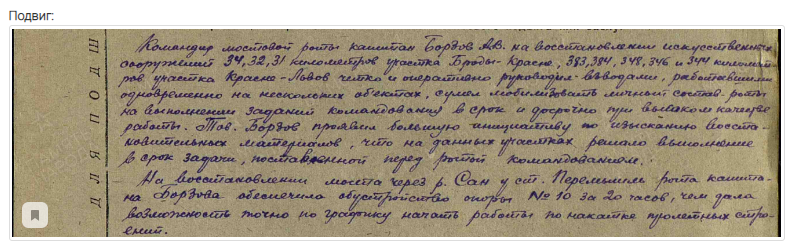 Подвиг:
Командир мостовой роты капитан Бордов А.В. на восстановлении искусственных
сооружений 34, 32, 31 километров участка Броды-Красне, 383, 384, 348, 346 и 344 километ-
ров участка Красне-Львов четко и оперативно руководил взводами, работавшими
одновременно на нескольких объектах, сумел мобилизовать личный состав роты
на выполнении заданий командования в срок и досрочно при высоком качестве
работы. Тов. Бордов проявил большую инициативу по изысканию восста-
новительных материалов, что на данных участках решало выполнение
в срок задачи, поставленной перед ротой командованием.
На восстановлении моста через р. Сан у ст. Перемышль рота капита-
на Бордова обеспечила обустройство опоры № 10 за 20 часов, чем дала
возможность точно по графику начать работы по накатке пролетных стро-
ений.
ДЛЯ ПОДШ